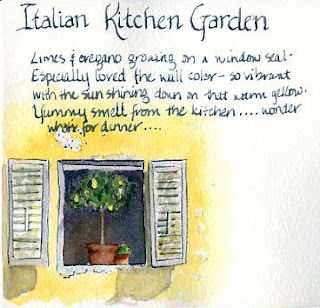 Italian Kitchen Garden
Limes & oregano growing on a window seal.
Especially loved the wall color - so vibrant
with the sun shining down on that warm yellow.
Yummy smell from the kitchen .... wonder
what's for dinner ....